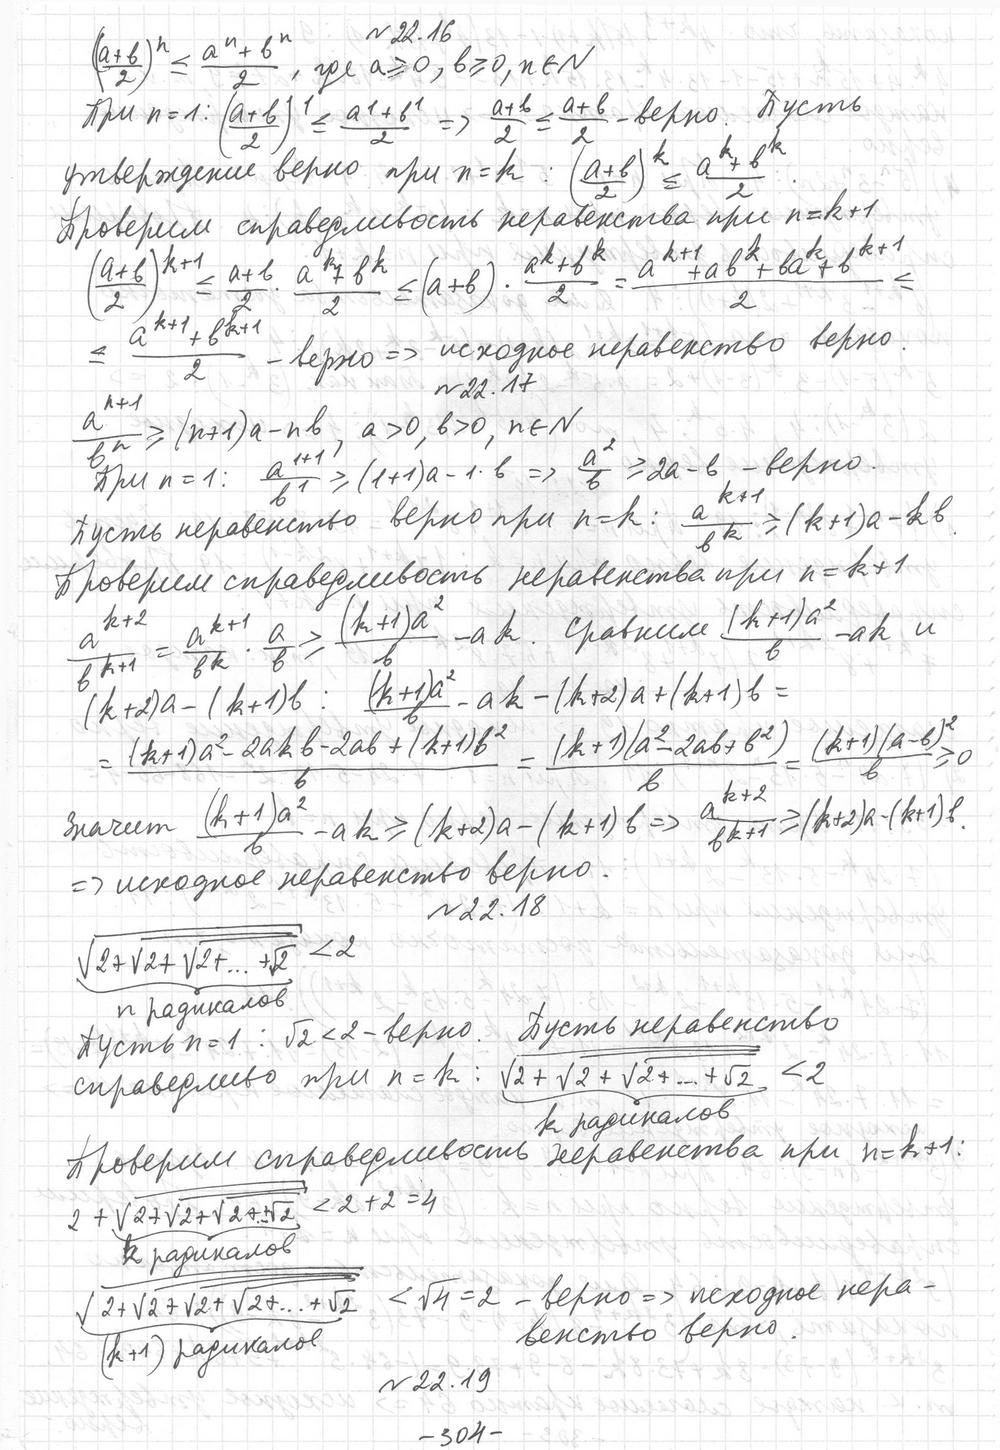 №22.16
((a+b)/2)^n ≤ (a^n + b^n)/2, где a≥0, b≥0, n∈N
При n=1: ((a+b)/2)^1 ≤ (a^1+b^1)/2 => (a+b)/2 ≤ (a+b)/2 – верно. Пусть
утверждение верно при n=k: ((a+b)/2)^k ≤ (a^k+b^k)/2.
Проверим справедливость неравенства при n=k+1
((a+b)/2)^(k+1) ≤ (a+b)/2 · (a^k+b^k)/2 ≤ (a+b) · (a^k+b^k)/2 = (a^(k+1)+ab^k+ba^k+b^(k+1))/2 ≤
≤ (a^(k+1)+b^(k+1))/2 – верно => исходное неравенство верно.
№22.17
a^(n+1)/b^n ≥ (n+1)a-nb, a>0, b>0, n∈N
При n=1: a^(1+1)/b^1 ≥ (1+1)a-1·b => a^2/b ≥ 2a-b – верно.
Пусть неравенство верно при n=k: a^(k+1)/b^k ≥ (k+1)a-kb.
Проверим справедливость неравенства при n=k+1
a^(k+2)/b^(k+1) = a^(k+1)/b^k · a/b ≥ (k+1)a^2/b - ak. Сравним (k+1)a^2/b - ak и
(k+2)a-(k+1)b: (k+1)a^2/b - ak-(k+2)a+(k+1)b =
= ((k+1)a^2-2akb-2ab+(k+1)b^2)/b = (k+1)(a^2-2ab+b^2)/b = (k+1)(a-b)^2/b ≥0
Значит (k+1)a^2/b - ak ≥ (k+2)a-(k+1)b => a^(k+2)/b^(k+1) ≥ (k+2)a-(k+1)b.
=> исходное неравенство верно.
№22.18
√(2+√(2+√(2+...+√2))) <2
n радикалов
Пусть n=1: √2<2 – верно. Пусть неравенство
справедливо при n=k: √(2+√(2+√(2+...+√2))) <2
k радикалов
Проверим справедливость неравенства при n=k+1:
2+√(2+√(2+√(2+...+√2))) <2+2=4
k радикалов
√(2+√(2+√(2+√(2+...+√2)))) <√4=2 – верно => исходное нера-
венство верно.
(k+1) радикалов
№22.19
-304-